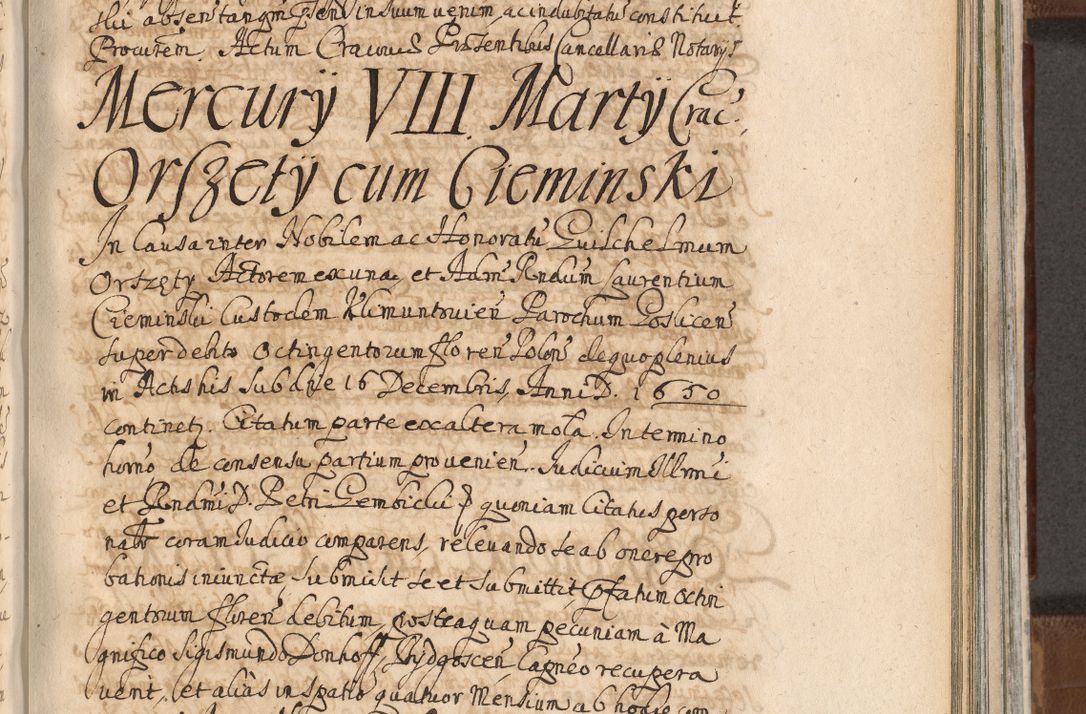 absen tangm psen in suum uenim, ac indubitatu constituit
Procurem. Actum Cracouiæ Præsentibus Cancellariæ Notarys
Mercurÿ VIII. Martÿ Crac.
Orszetÿ cum Cieminski
In Causa inter Nobilem ac Honoratu Guilhelmum
Orszęty Actorem ex una, et Adm Rndum Laurentium
Cieminski Custodem Klimuntouien Parochum Goslicen
super debito octingentorum floren Polon de quo plenius
in Actis his sub die 16 Decembris, Anni D. 1650
continetz. Citatum parte ex altera mota. In termino
horno de consensu partium prouenien. Iudicium Illmi
et Rndmi D. Petri Gembicki quoniam Citatus perso
natr coram Iudicio comparens, releuando se ab onere pro
bationis iniunctæ, submisit se et submittit, pfatum octin
gentorum floren debitum, posteaquam pecuniam à Ma
gnifico Sigismundo Donhoff, Bydgoscen Capneo recupera
uerit, et aliàs in spatio quatuor Mensium ab hodie com